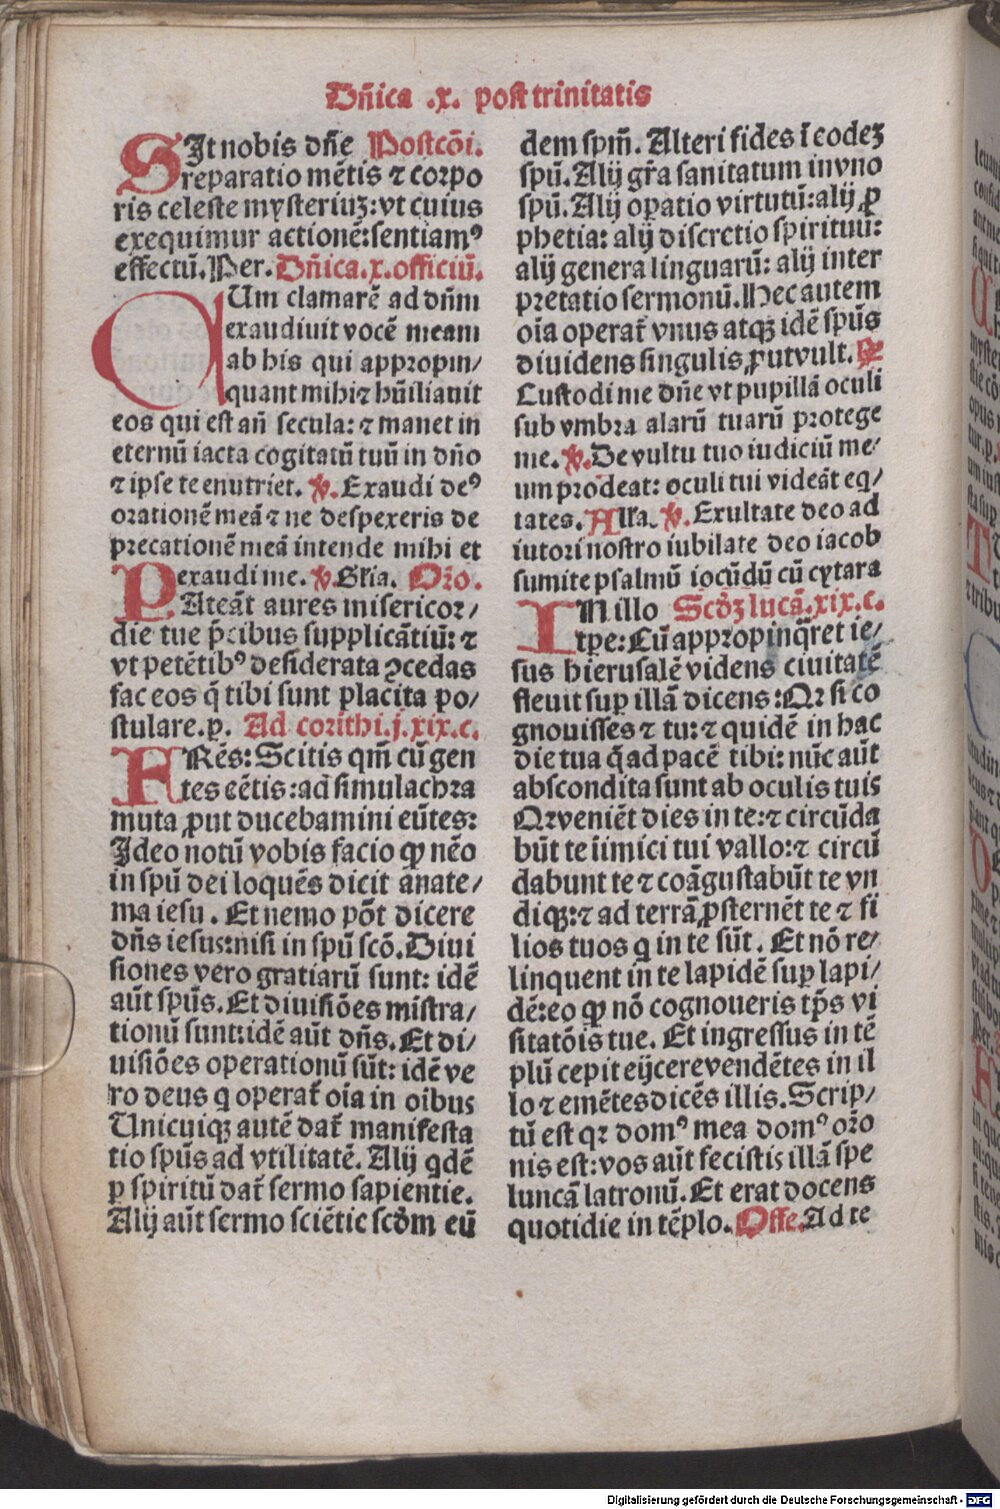 Dñica .x. post trinitatis
SIt nobis dñe Postcõi.
reparatio mẽtis ⁊ corpo
ris celeste mysteriuꝫ: vt cuius
exequimur actionẽ: sentiamꝰ
effectũ. Per. Dñica. x. officiũ.
CUm clamarẽ ad dñm
exaudiuit vocẽ meam
ab his qui appropin/
quant mihi ⁊ hũiliauit
eos qui est añ secula: ⁊ manet in
eternũ iacta cogitatũ tuũ in dño
⁊ ipse te enutriet. ℣. Exaudi deꝰ
orationẽ meã ⁊ ne despexeris de
precationẽ meã intende mihi et
exaudi me. ℣. Gľia. Oŕo.
PAteãt aures misericor/
die tue p̃cibus supplicãtiũ: ⁊
vt petẽtibꝰ desiderata ꝯcedas
fac eos q̃ tibi sunt placita po/
stulare. p. Ad corĩthi. j. xix. c.
FRẽs: Scitis qm̃ cũ gen
tes eẽtis: ad simulachra
muta ꝓut ducebamini eũtes:
Ideo notũ vobis facio ꝙ nẽo
in spũ dei loquẽs dicit anate/
ma iesu. Et nemo põt dicere
dñs iesus: nisi in spũ scõ. Diui
siones vero gratiarũ sunt: idẽ
aũt spũs. Et diuisiões mĩstra/
tionũ sunt: idẽ aũt dñs. Et di/
uisiões operationũ sũt: idẽ ve
ro deus q operat̃ oĩa in oĩbus
Unicuiqꝫ autẽ dat̃ manifesta
tio spũs ad vtilitatẽ. Alij qdẽ
ꝑ spiritũ dat̃ sermo sapientie.
Alij aũt sermo sciẽtie scďm eũ
dem spm̃. Alteri fides ĩ eodeꝫ
spũ. Alij gr̃a sanitatum in vno
spũ. Alij oꝑatio virtutũ: alij ꝓ
phetia: alij discretio spirituũ:
alij genera linguarũ: alij inter
pretatio sermonũ. Hec autem
oĩa operat̃ vnus atqꝫ idẽ spũs
diuidens singulis ꝓut vult. ℟
Custodi me dñe vt pupillã oculi
sub vmbra alarũ tuarũ protege
me. ℣. De vultu tuo iudiciũ me/
um prodeat: oculi tui videãt eq/
tates. Alľa. ℣. Exultate deo ad
iutori nostro iubilate deo iacob
sumite psalmũ iocũdũ cũ cytara
IN illo Scďꝫ lucã. xix. c.
tꝑe: Cũ appropinq̃ret ie/
sus hierusalẽ videns ciuitatẽ
fleuit suꝑ illã dicens: Qꝛ si co
gnouisses ⁊ tu: ⁊ quidẽ in hac
die tua q̃ ad pacẽ tibi: nũc aũt
abscondita sunt ab oculis tuis
Qꝛ veniẽt dies in te: ⁊ circũda
bũt te iĩmici tui vallo: ⁊ circũ
dabunt te ⁊ coãgustabũt te vn
diqꝫ: ⁊ ad terrã ꝓsternẽt te ⁊ fi
lios tuos q in te sũt. Et nõ re/
linquent in te lapidẽ suꝑ lapi/
dẽ: eo ꝙ nõ cognoueris tp̃s vi
sitatõis tue. Et ingressus in tẽ
plũ cepit eijcere vendẽtes in il
lo ⁊ emẽtes dicẽs illis. Scrip/
tũ est qꝛ domꝰ mea domꝰ oŕo
nis est: vos aũt fecistis illã spe
luncã latronũ. Et erat docens
quotidie in tẽplo. Offe. Ad te
Digitalisierung gefördert durch die Deutsche Forschungsgemeinschaft - DFG